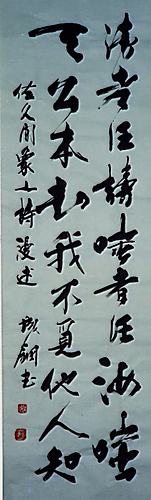 謗者任謗嗤者任汝嗤
天公本知我不覓他人知
佐久間象山詩漫述 書